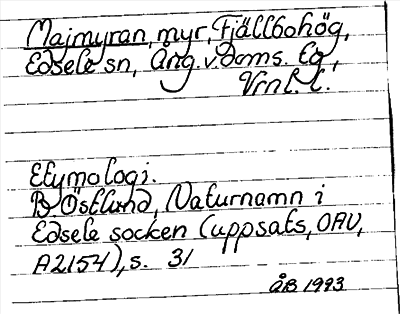 Majmyran, myr, Fjällbohög,
Edsele sn, Ång. v. Doms. Eg,
Vrnl. l.
Etymologi.
B Östlund, Naturnamn i
Edsele socken (uppsats, OAU,
A2154), s. 31
ÅB 1993